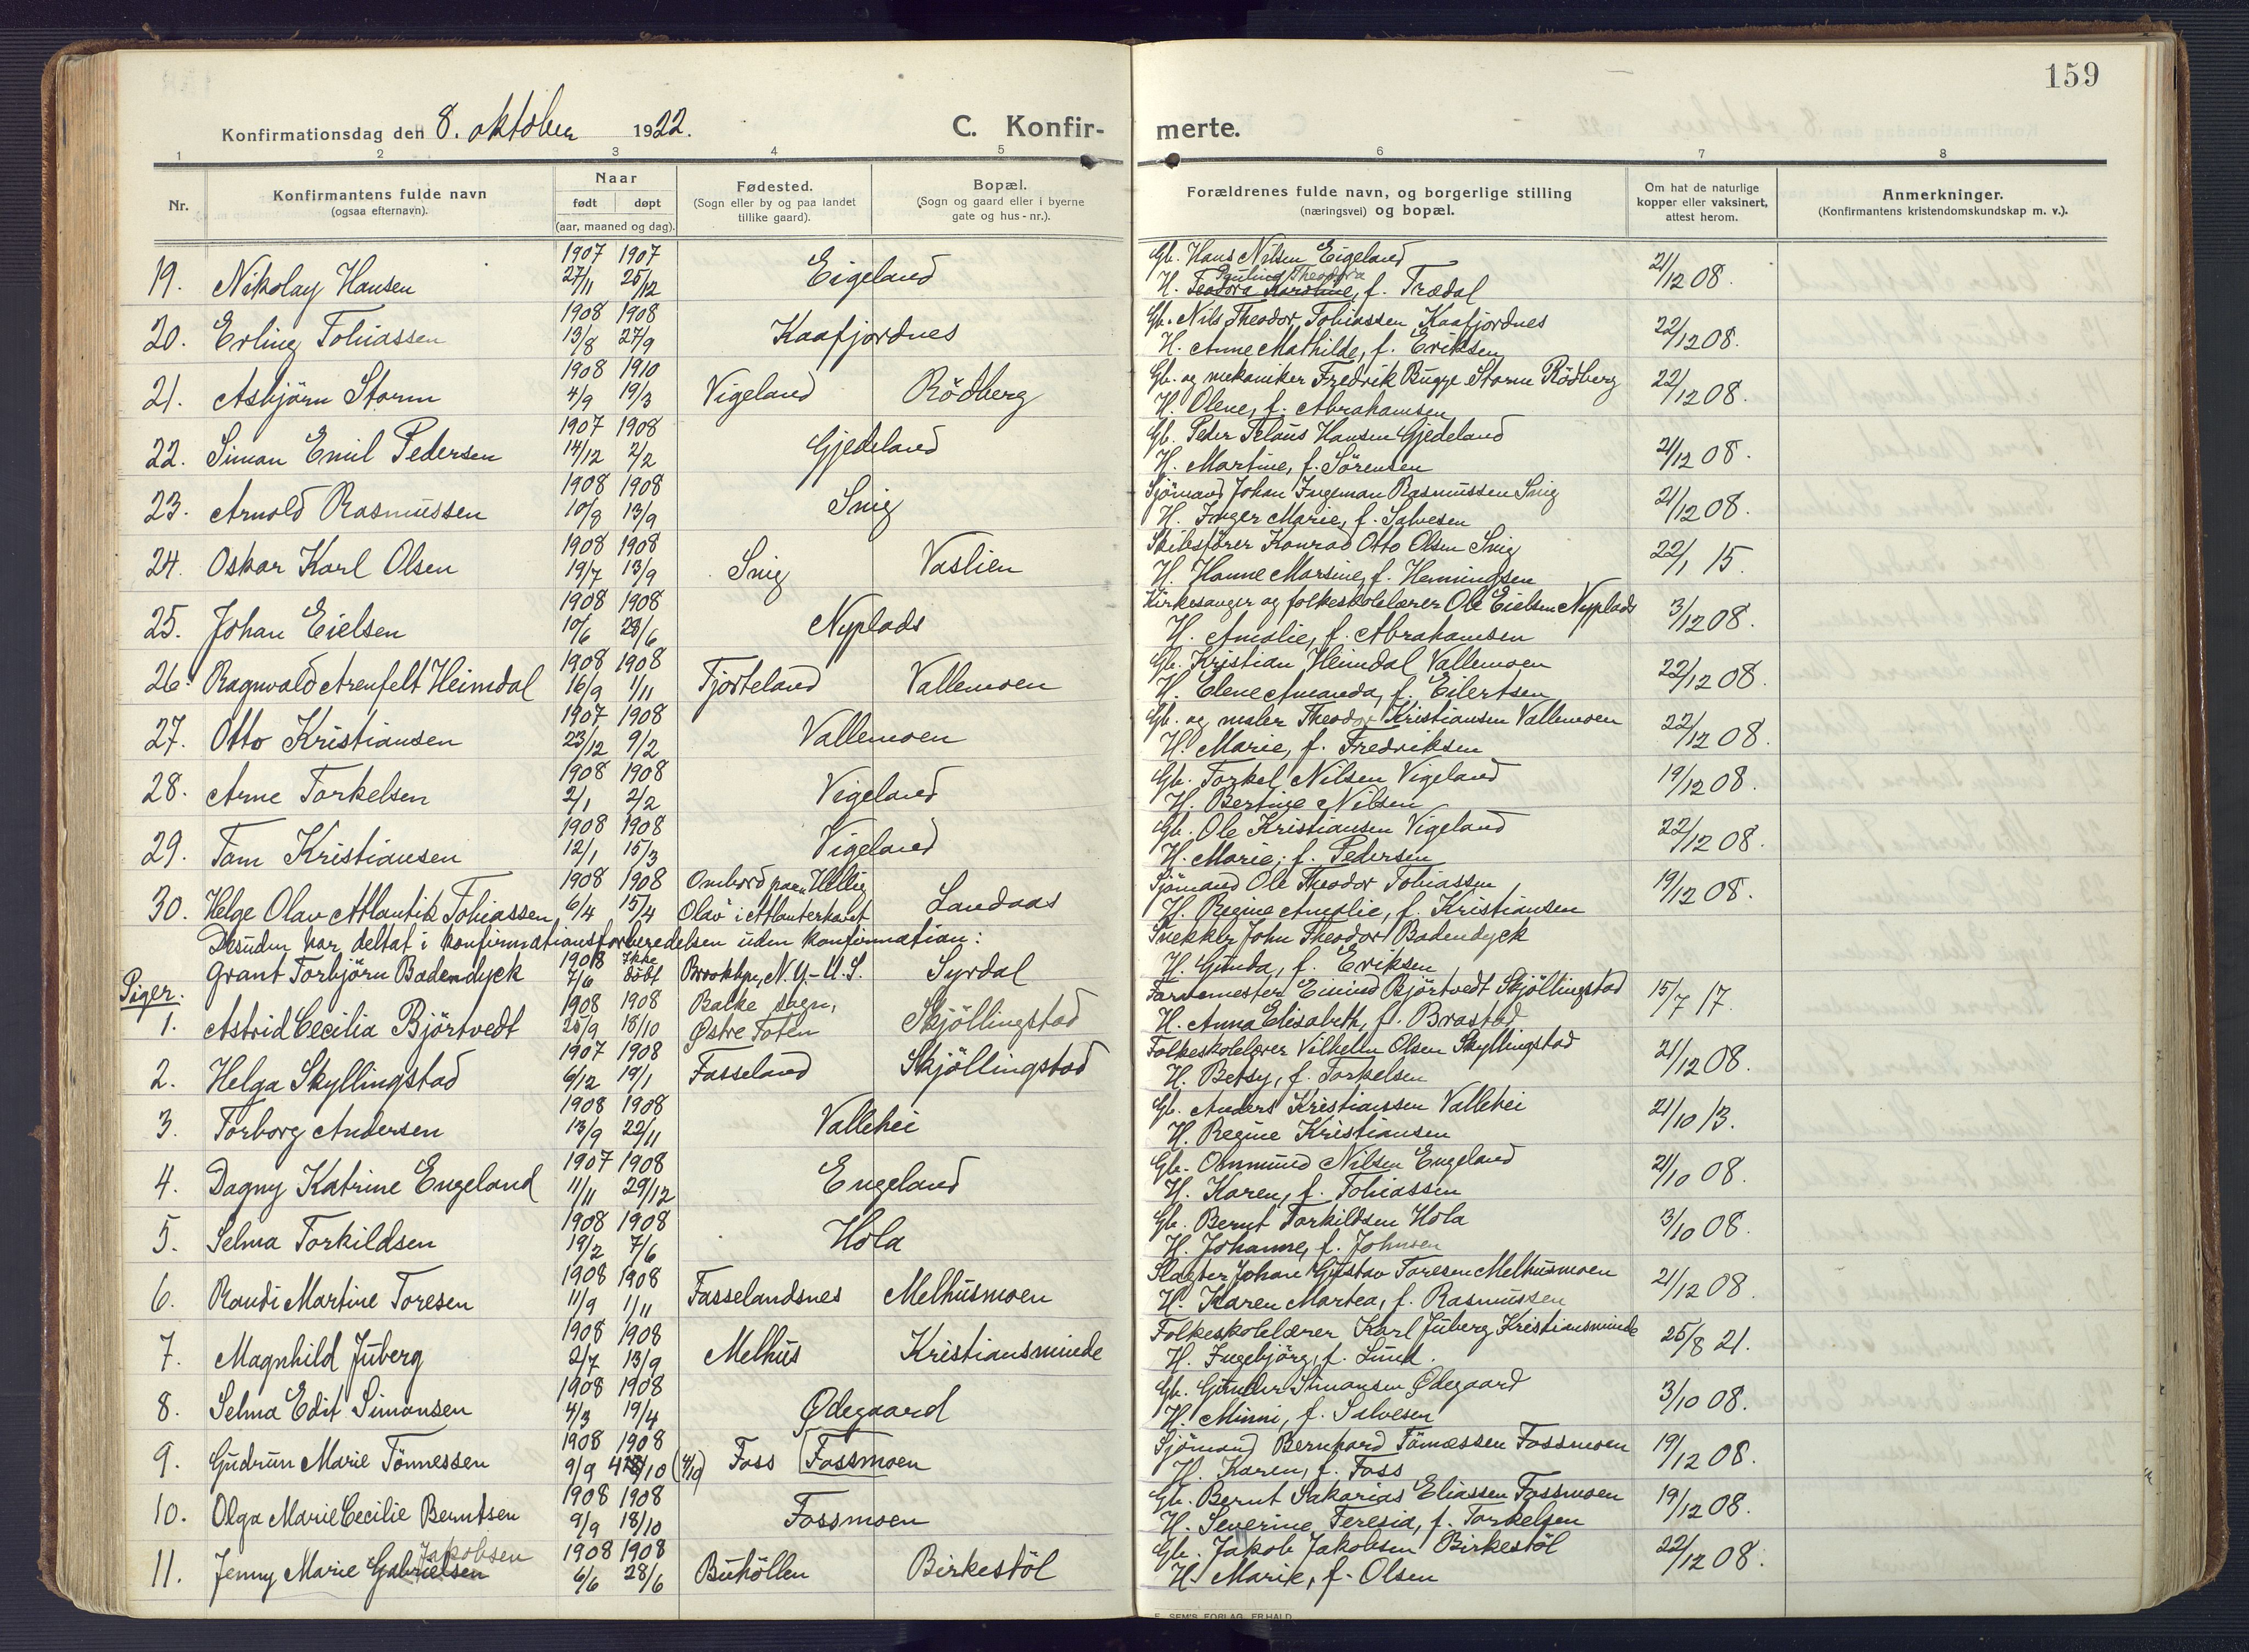 159
Konfirmationsdag den 8. oktober 1922.
C. Konfirmerte.
1 2 3 4 5 6 7 8
Nr.
Konfirmantens fulde navn
(ogsaa efternavn).
Naar
født døpt
(aar, maaned og dag).
Fødested.
(Sogn eller by og paa landet
tillike gaard).
Bopæl.
(Sogn og gaard eller i byerne
gate og hus-nr.).
Forældrenes fulde navn, og borgerlige stilling
(næringsvei) og bopæl.
Om hat de naturlige
kopper eller vaksinert,
attest herom.
Anmerkninger.
(Konfirmantens kristendomskundskap m. v.).
1907 1907 Gb. Hans Nilsen Eigeland
19. Nikolay Hansen 27/11 25/12 Eigeland 21/12 08.
Pauline Theodora
H. Teodora Karoline, f. Trædal
1908 1908 Gb. Nils Theodor Tobiassen Kaafjordnes
20. Erling Tobiassen 13/8 27/9 Kaafjordnes 22/12 08.
H. Anne Mathilde, f. Eriksen
1908 1910 Gb. og mekaniker Fredrik Bugge Storm Rödberg
21. Asbjörn Storm 4/9 19/3 Vigeland Rödberg 22/12 08.
H. Olene, f. Abrahamsen
1907 1908 Gb. Peder Telaus Hansen Gjedeland
22. Simon Emil Pedersen 14/12 2/2 Gjedeland 21/12 08.
H. Martine, f. Sörensen
1908 1908 Sjömand Johan Ingeman Rasmussen Snig
23. Arnold Rasmussen 10/8 13/9 Snig 21/12 08.
H. Inger Marie, f. Salvesen
1908 1908 Skibsförer Konrad Otto Olsen Snig
24. Oskar Karl Olsen 19/7 13/9 Snig Vaslien 22/1 15.
H. Hanne Marsine, f. Henningsen
1908 1908 Kirkesanger og folkeskolelærer Ole Eielsen Nyplads
25. Johan Eielsen 10/6 28/6 Nyplads 3/12 08.
H. Amalie, f. Abrahamsen
1908 1908 Gb. Kristian Heimdal Vallemoen
26. Ragnvald Arenfelt Heimdal 16/9 1/11 Tjorteland Vallemoen 22/12 08.
H. Elene Amanda, f. Eilertsen
1907 1908 Gb. og maler Theodor Kristiansen Vallemoen
27. Otto Kristiansen 23/12 9/2 Vallemoen 22/12 08.
H. Marie, f. Fredriksen
1908 1908 Gb. Torkel Nilsen Vigeland
28. Arne Torkelsen 2/1 2/2 Vigeland 19/12 08.
H. Bertine Nilsen
1908 1908 Gb. Ole Kristiansen Vigeland
29. Tom Kristiansen 12/1 15/3 Vigeland 22/12 08.
H. Marie, f. Pedersen
1908 1908 Ombord paa "Hellig Sjömand Ole Theodor Tobiassen
30. Helge Olav Atlantik Tobiassen 6/4 15/4 Olav" i Atlanterhavet Landaas 19/12 08.
H. Regine Amalie, f. Kristiansen
Desuden har deltat i konfirmationsforberedelsen uden konfirmation:
Snekker John Theodor Badendyck
1908 Ikke
Grant Torbjörn Badendyck 7/6 döbt Brooklyn, N.Y.-U.S. Syrdal
H. Gunda, f. Eriksen
Piger:
1908 1908 Balke sogn, Farvemester Eivind Björtvedt Skjöllingstad
1. Astrid Cecilia Björtvedt 25/9 18/10 Østre Toten Skjöllingstad 15/7 17.
H. Anna Elisabeth, f. Brastad
1907 1908 Folkeskolelærer Vilhelm Olsen Skyllingstad
2. Helga Skyllingstad 6/12 19/1 Fasseland Skjöllingstad 21/12 08.
H. Betsy, f. Torkelsen
1908 1908 Gb. Anders Kristianssen Vallehei
3. Torborg Andersen 13/9 22/11 Vallehei 21/10 13.
H. Regine Kristiansen
1907 1908 Gb. Ommund Nilsen Engeland
4. Dagny Katrine Engeland 11/11 29/12 Engeland 21/10 08.
H. Karen, f. Tobiassen
1908 1908 Gb. Bernt Torkildsen Hola
5. Selma Torkildsen 19/2 7/6 Hola 3/10 08.
H. Johanne, f. Johnsen
1908 1908 Slagter Johan Gustav Toresen Melhusmoen
6. Randi Martine Toresen 11/9 1/11 Fasselandsnes Melhusmoen 21/12 08.
H. Karen Martea, f. Rasmussen
1908 1908 Folkeskolelærer Karl Juberg Kristiansminde
7. Magnhild Juberg 2/7 13/9 Melhus Kristiansminde 25/8 21.
H. Ingebjörg, f. Lund.
1908 1908 Gb. Gunder Simonsen Ødegaard
8. Selma Edit Simonsen 4/3 19/4 Ødegaard 3/10 08.
H. Minni, f. Salvesen
1908 1908 Sjömand Bernhard Tönnessen Fossmoen
9. Gudrun Marie Tönnessen 9/9 4/10 (4/10) Foss Fossmoen 19/12 08.
H. Karen, f. Foss
1908 1908 Gb. Bernt Sakarias Eliassen Fossmoen
10. Olga Marie Cecilie Berntsen 9/9 18/10 Fossmoen 19/12 08.
H. Severine Teresia, f. Torkelsen
Jakobsen
1908 1908 Gb. Jakob Jakobsen Birkestöl
11. Jenny Marie Gabrielsen 6/6 28/6 Buhöllen Birkestöl 22/12 08.
H. Marie, f. Olsen